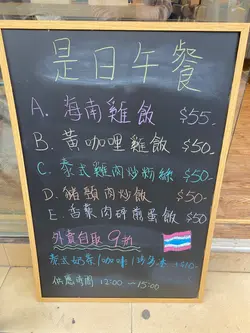 是日午餐
A. 海南雞飯 $55-
B. 黃咖哩雞飯 $50-
C. 泰式雞肉炒粉絲 $50-
D. 豬頸肉炒飯 $50-
E. 香葉肉碎煎蛋飯 $50
外賣自取9折
泰式奶茶/咖啡/ $10.-
供應時間 12:00 — 15:00